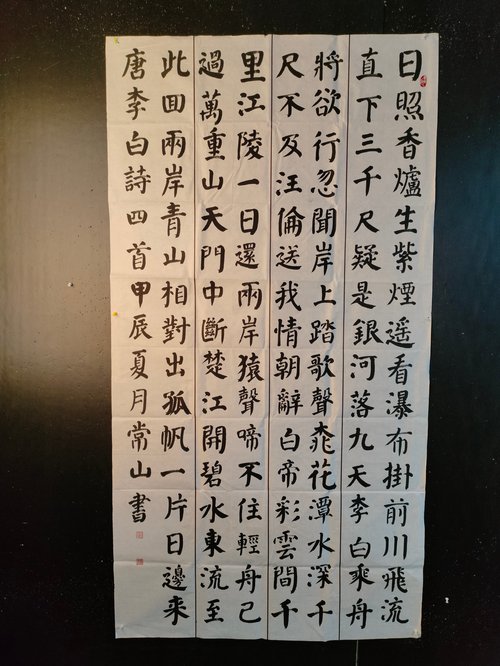 日照香爐生紫煙遙看瀑布掛前川飛流
直下三千尺疑是銀河落九天李白乘舟
將欲行忽聞岸上踏歌聲桃花潭水深千
尺不及汪倫送我情朝辭白帝彩雲間千
里江陵一日還兩岸猿聲啼不住輕舟已
過萬重山天門中斷楚江開碧水東流至
此回兩岸青山相對出孤帆一片日邊來
唐李白詩四首甲辰夏月常山書